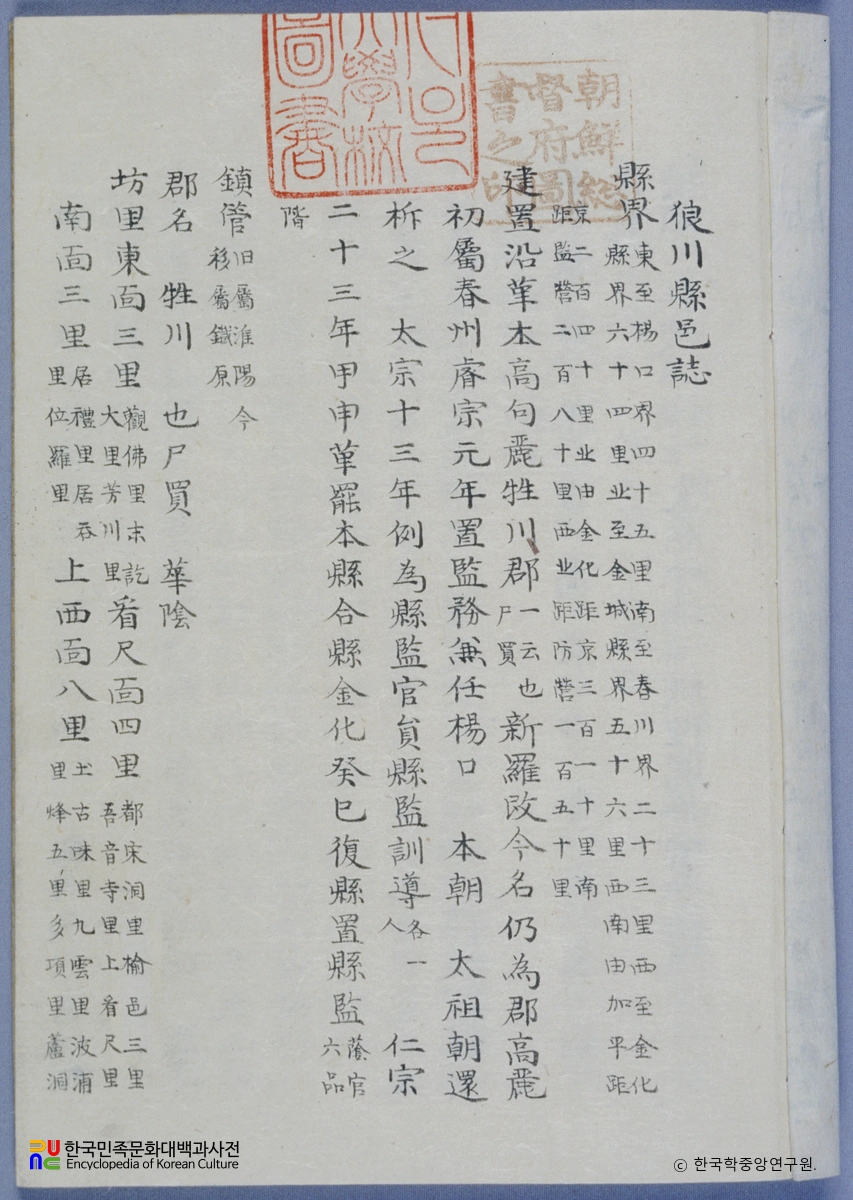 朝鮮総
督府圖
書之印
大學校
圖書
狼川縣邑誌
縣界東至楊口界四十五里南至春川界二十三里西至金化
縣界六十四里北至金城縣界五十六里西南由加平距
京二百四十里北由金化距京三百一十里南
距監營二百八十里西北距防營一百五十里
建置沿革本高句麗牲川郡一云也尸買新羅改今名仍為郡高麗
初屬春州睿宗元年置監務兼任楊口 本朝 太祖朝還
柝之 太宗十三年例為縣監官員縣監訓導各一人 仁宗
二十三年甲申革罷本縣合縣金化癸巳復縣置縣監蔭官六品
階
鎮管旧屬淮陽今移屬鐵原
郡名 牲川 也尸買 華陰
坊里東面三里觀佛里末訖大里芳川里看尺面四里都宋洞里楡邑三里吾音寺里上看尺里
南面三里居禮里居呑里位羅里上西面八里土古味里九雲里波浦里烽五里多項里蘆洞
한국민족문화대백과사전
Encyclopedia of Korean Culture
ⓒ 한국학중앙연구원.